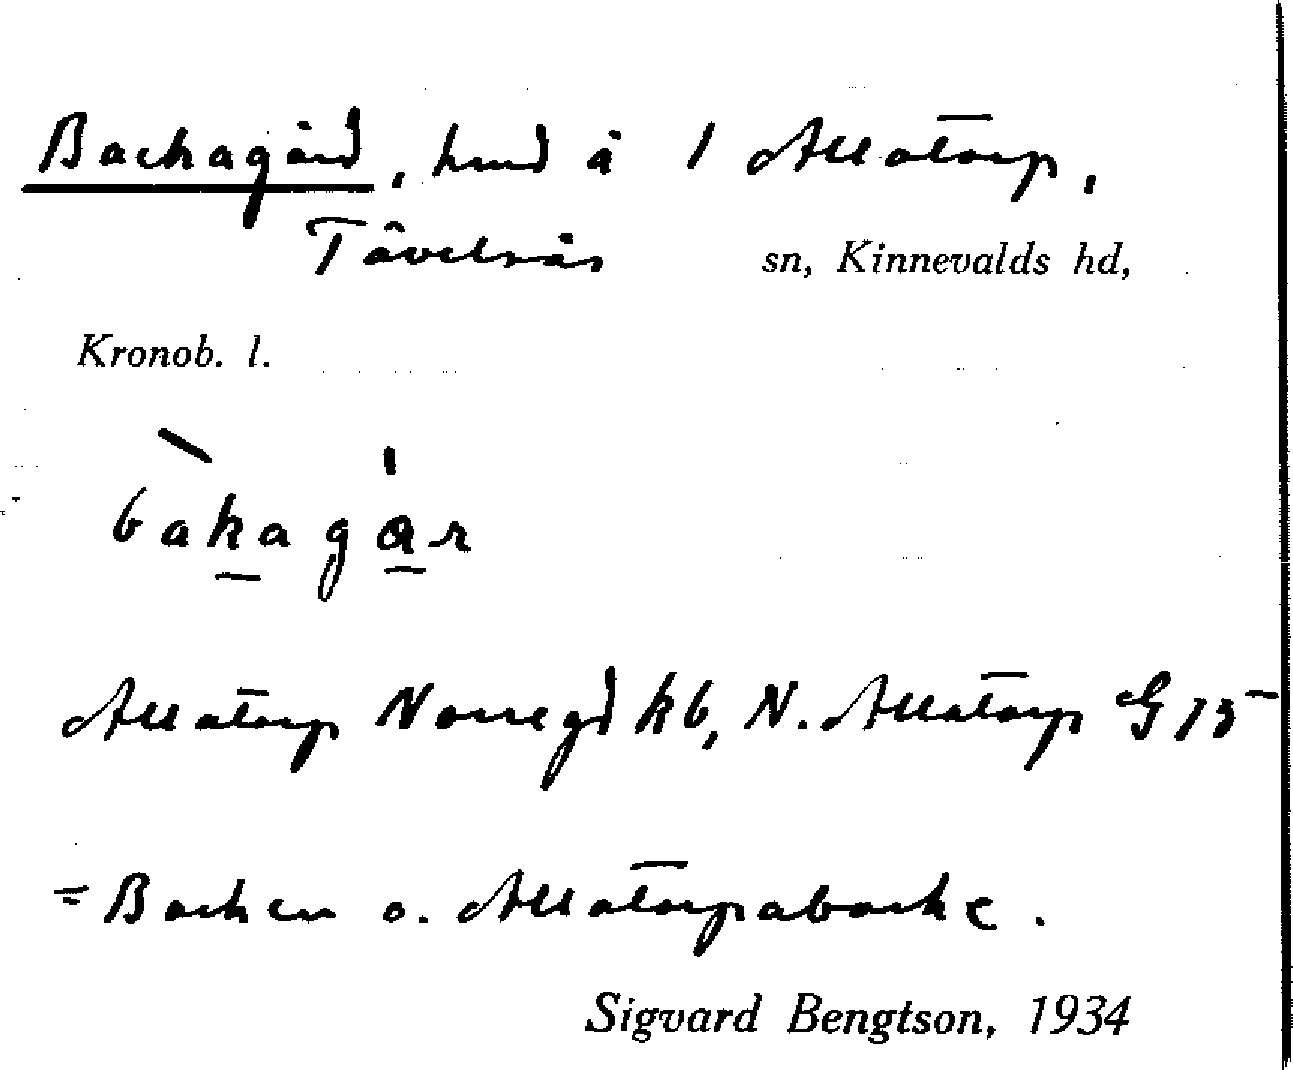 Backagård, hmd å 1 Allatorp,
Tävelsås sn, Kinnevalds hd,
Kronob. l.
bakagår
Allatorp Norregd kb, N. Allatorp G 13
= Backen o. Allatorpabacke.
Sigvard Bengtson, 1934